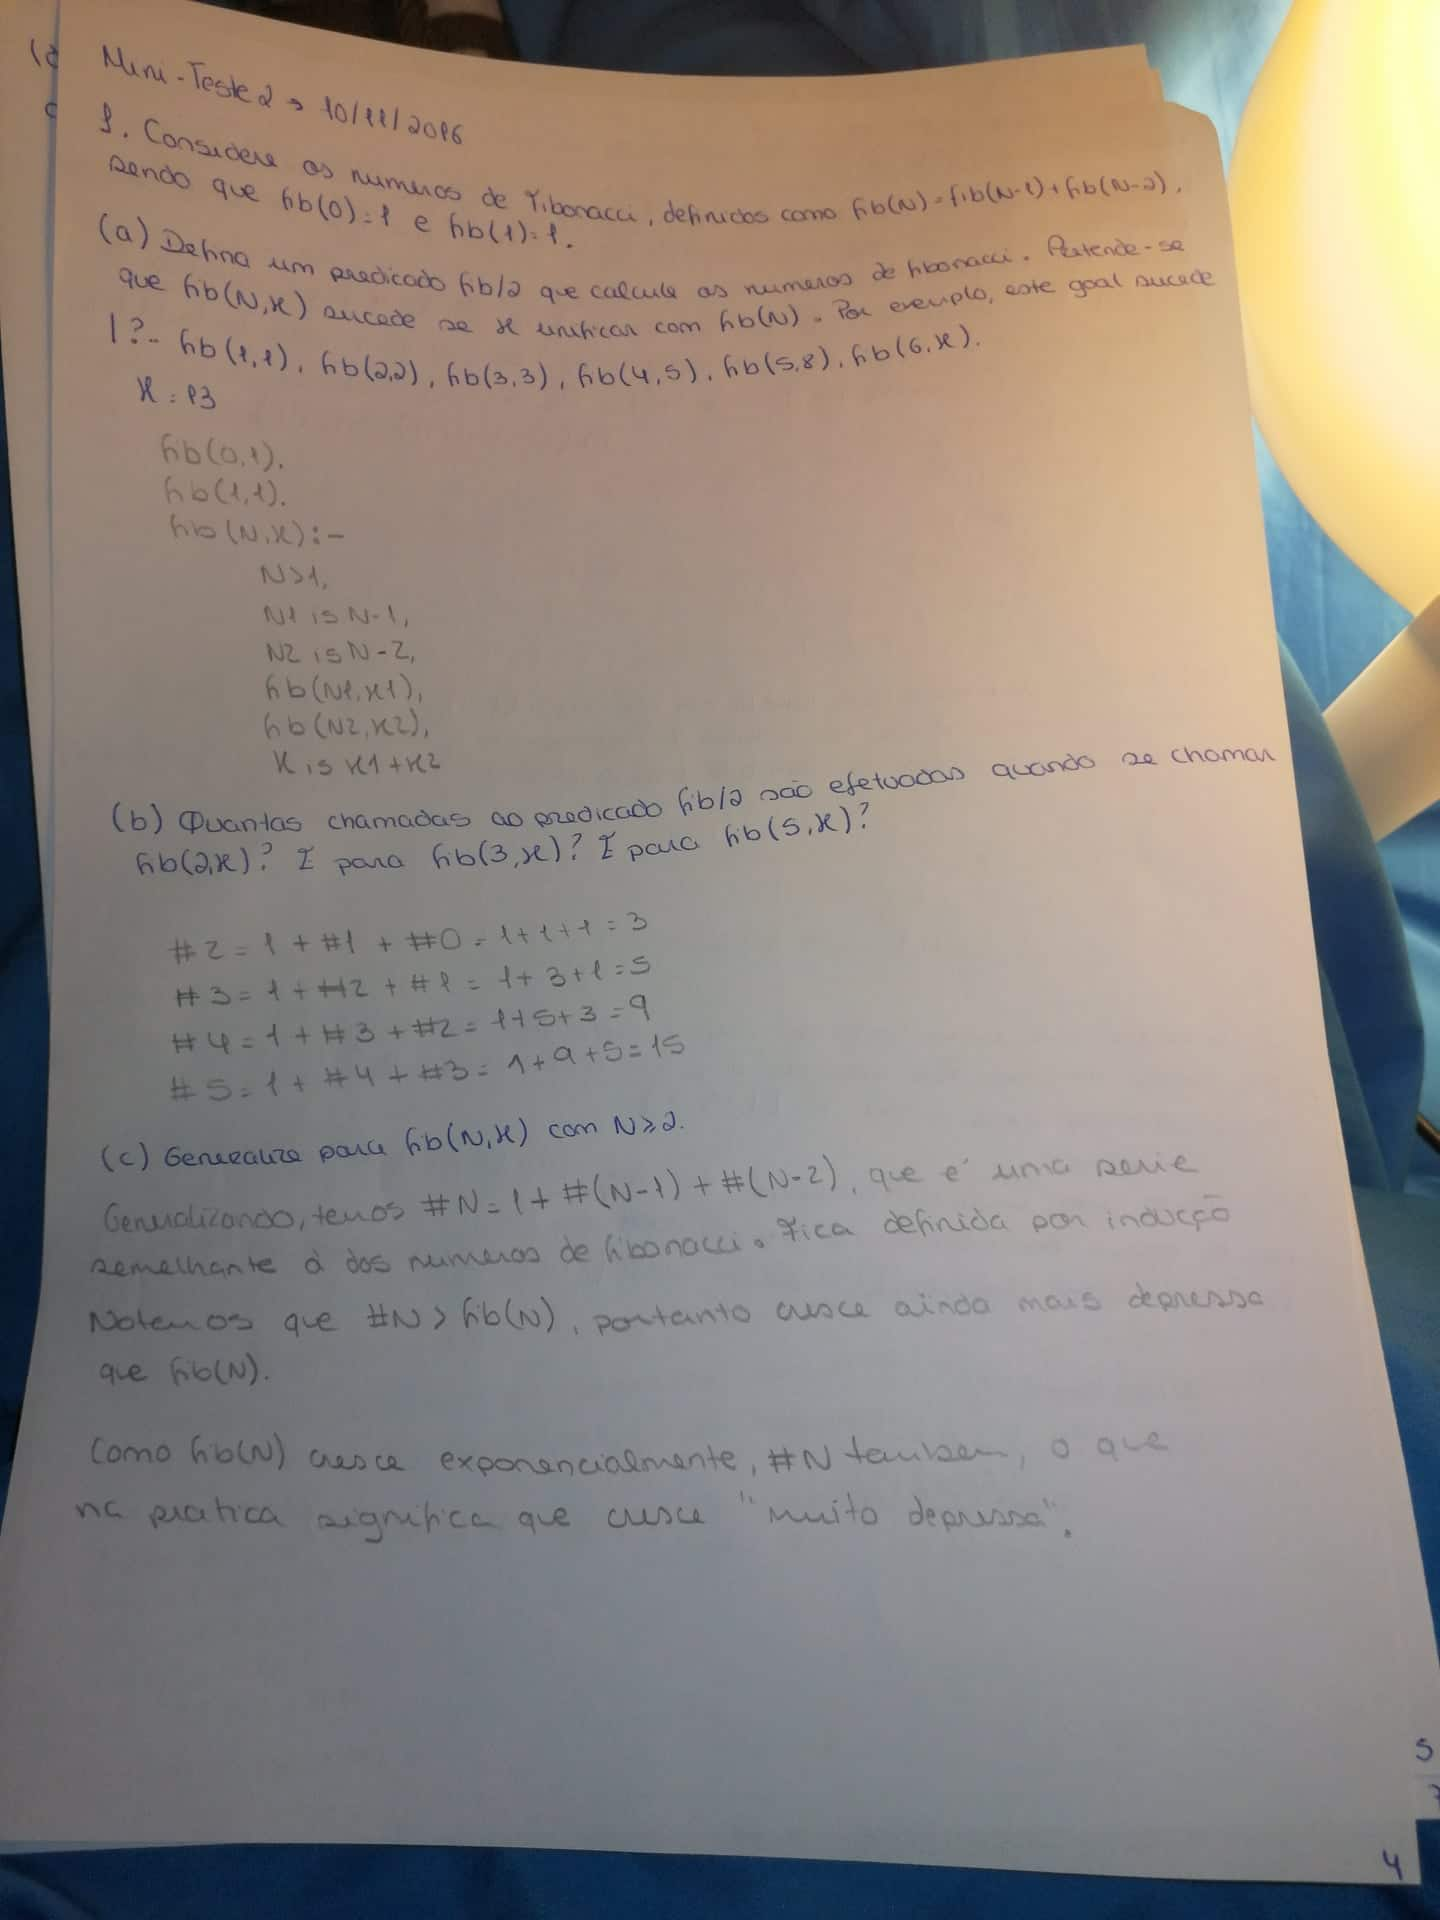 Mini-Teste 2 → 10/11/2016
1. Considere os numeros de Fibonacci, definidos como fib(N)=fib(N-1)+fib(N-2),
sendo que fib(0)=1 e fib(1)=1.
(a) Defina um predicado fib/2 que calcule os numeros de fibonacci. Pretende-se
que fib(N,X) sucede se X unificar com fib(N). Por exemplo, este goal sucede
|?- fib(1,1), fib(2,2), fib(3,3), fib(4,5), fib(5,8), fib(6,X).
X=13
fib(0,1).
fib(1,1).
fib(N,X):-
N>1,
N1 is N-1,
N2 is N-2,
fib(N1,X1),
fib(N2,X2),
X is X1+X2
(b) Quantas chamadas ao predicado fib/2 são efetuadas quando se chamar
fib(2,X)? E para fib(3,X)? E para fib(5,X)?
#2=1+#1+#0=1+1+1=3
#3=1+#2+#1=1+3+1=5
#4=1+#3+#2=1+5+3=9
#5=1+#4+#3=1+9+5=15
(c) Generalize para fib(N,X) com N≥2.
Generalizando, temos #N=1+#(N-1)+#(N-2), que é uma serie
semelhante à dos numeros de fibonacci. Fica definida por inducção
Notemos que #N>fib(N), portanto cresce ainda mais depressa
que fib(N).
Como fib(N) cresce exponencialmente, #N tambem, o que
na pratica significa que cresce "muito depressa".
5
4